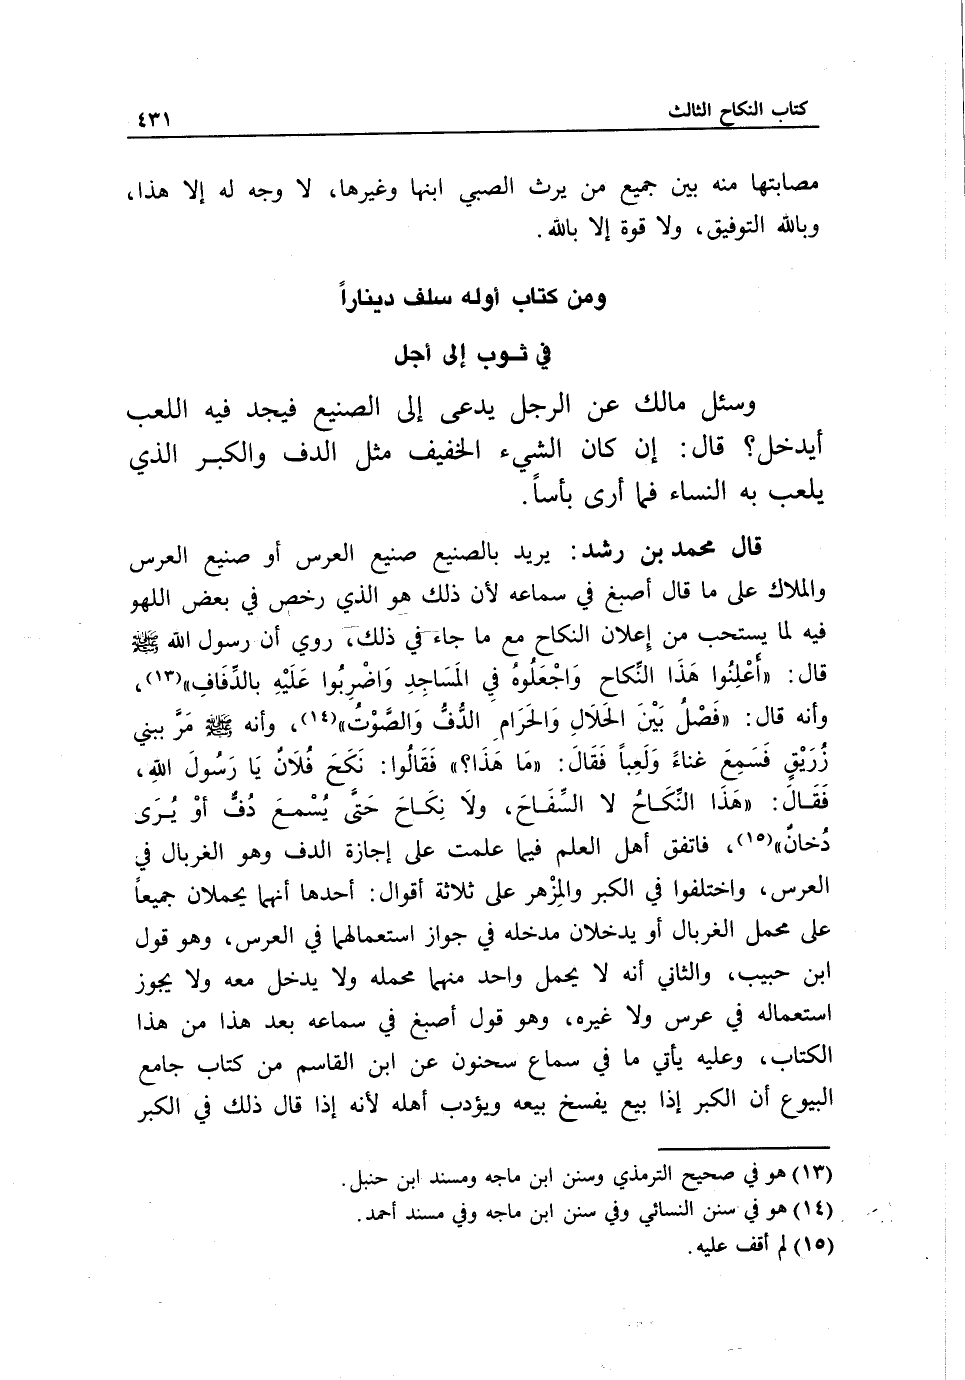 كتاب النكاح الثالث ٤٣١
مصابتها منه بين جميع من يرث الصبي ابنها وغيرها، لا وجه له إلا هذا،
وبالله التوفيق، ولا قوة إلا بالله.
ومن كتاب أوله سلف ديناراً
في ثوب إلى أجل
وسئل مالك عن الرجل يدعى إلى الصنيع فيجد فيه اللعب
أيدخل؟ قال: إن كان الشيء الخفيف مثل الدف والكبر الذي
يلعب به النساء فما أرى بأساً.
قال محمد بن رشد: يريد بالصنيع صنيع العرس أو صنيع العرس
والملاك على ما قال أصبغ في سماعه لأن ذلك هو الذي رخص في بعض اللهو
فيه لما يستحب من إعلان النكاح مع ما جاء في ذلك، روي أن رسول الله ﷺ
قال: «أَعْلِنُوا هَذَا النِّكاح وَاجْعَلُوهُ فِي المَسَاجِدِ وَاضْرِبُوا عَلَيْهِ بالدِّفَافِ»(١٣)،
وأنه قال: «فَصْلُ بَيْنَ الحَلَالِ وَالحَرَامِ الدُّفُّ وَالصَّوْتُ»(١٤)، وأنه ﷺ مَرَّ ببني
زُرَيْقٍ فَسَمِعَ غناءً وَلَعِباً فَقَالَ: «مَا هَذَا؟» فَقَالُوا: نَكَحَ فُلَانٌ يَا رَسُولَ اللهِ،
فَقَالَ: «هَذَا النِّكَاحُ لا السِّفَاحَ، ولَا نِكَاحَ حَتَّى يُسْمعَ دُفٌّ أوْ يُرَى
دُخانٌ»(١٥)، فاتفق أهل العلم فيما علمت على إجازة الدف وهو الغربال في
العرس، واختلفوا في الكبر والمِزْهر على ثلاثة أقوال: أحدها أنهما يحملان جميعاً
على محمل الغربال أو يدخلان مدخله في جواز استعمالهما في العرس، وهو قول
ابن حبيب، والثاني أنه لا يحمل واحد منهما محمله ولا يدخل معه ولا يجوز
استعماله في عرس ولا غيره، وهو قول أصبغ في سماعه بعد هذا من هذا
الكتاب، وعليه يأتي ما في سماع سحنون عن ابن القاسم من كتاب جامع
البيوع أن الكبر إذا بيع يفسخ بيعه ويؤدب أهله لأنه إذا قال ذلك في الكبر
(١٣) هو في صحيح الترمذي وسنن ابن ماجه ومسند ابن حنبل.
(١٤) هو في سنن النسائي وفي سنن ابن ماجه وفي مسند أحمد.
(١٥) لم أقف عليه.